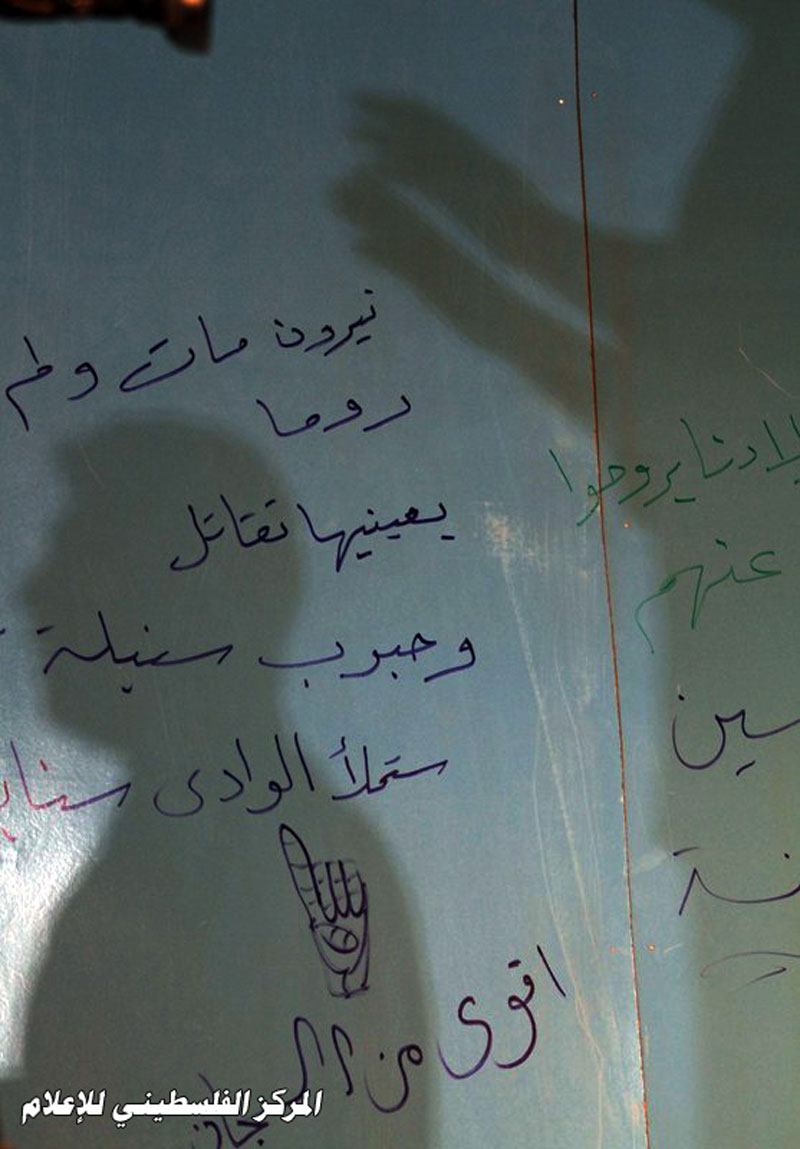 نيرون مات ولم
روما
بعينيها تقاتل
وحبوب سنبلة
ستملأ الوادى سنابـ
اقوى من
لادنا يروحوا
عنهم
سين
المركز الفلسطيني للإعلام